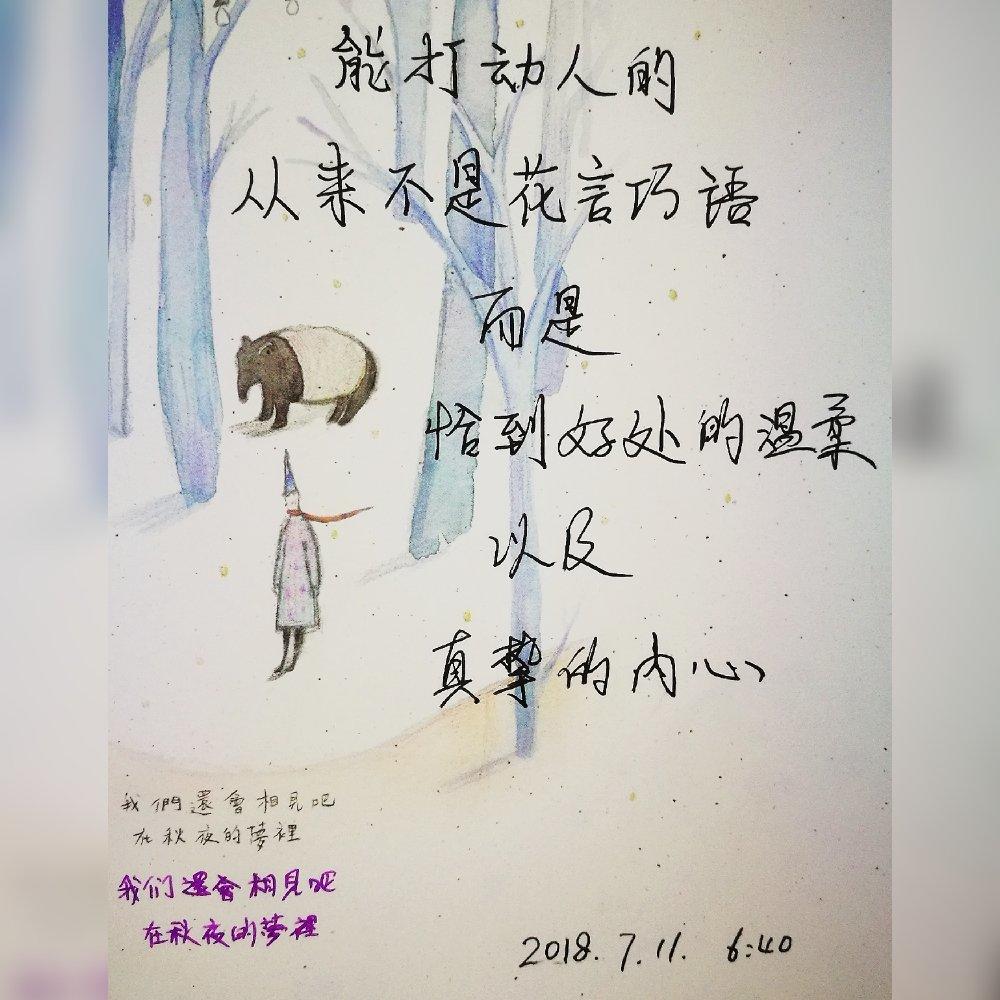 能打动人的
从来不是花言巧语
而是
恰到好处的温柔
以及
真挚的内心
我們還會相見吧
在秋夜的夢裡
我们還會相見吧
在秋夜的夢裡
2018.7.11. 6:40